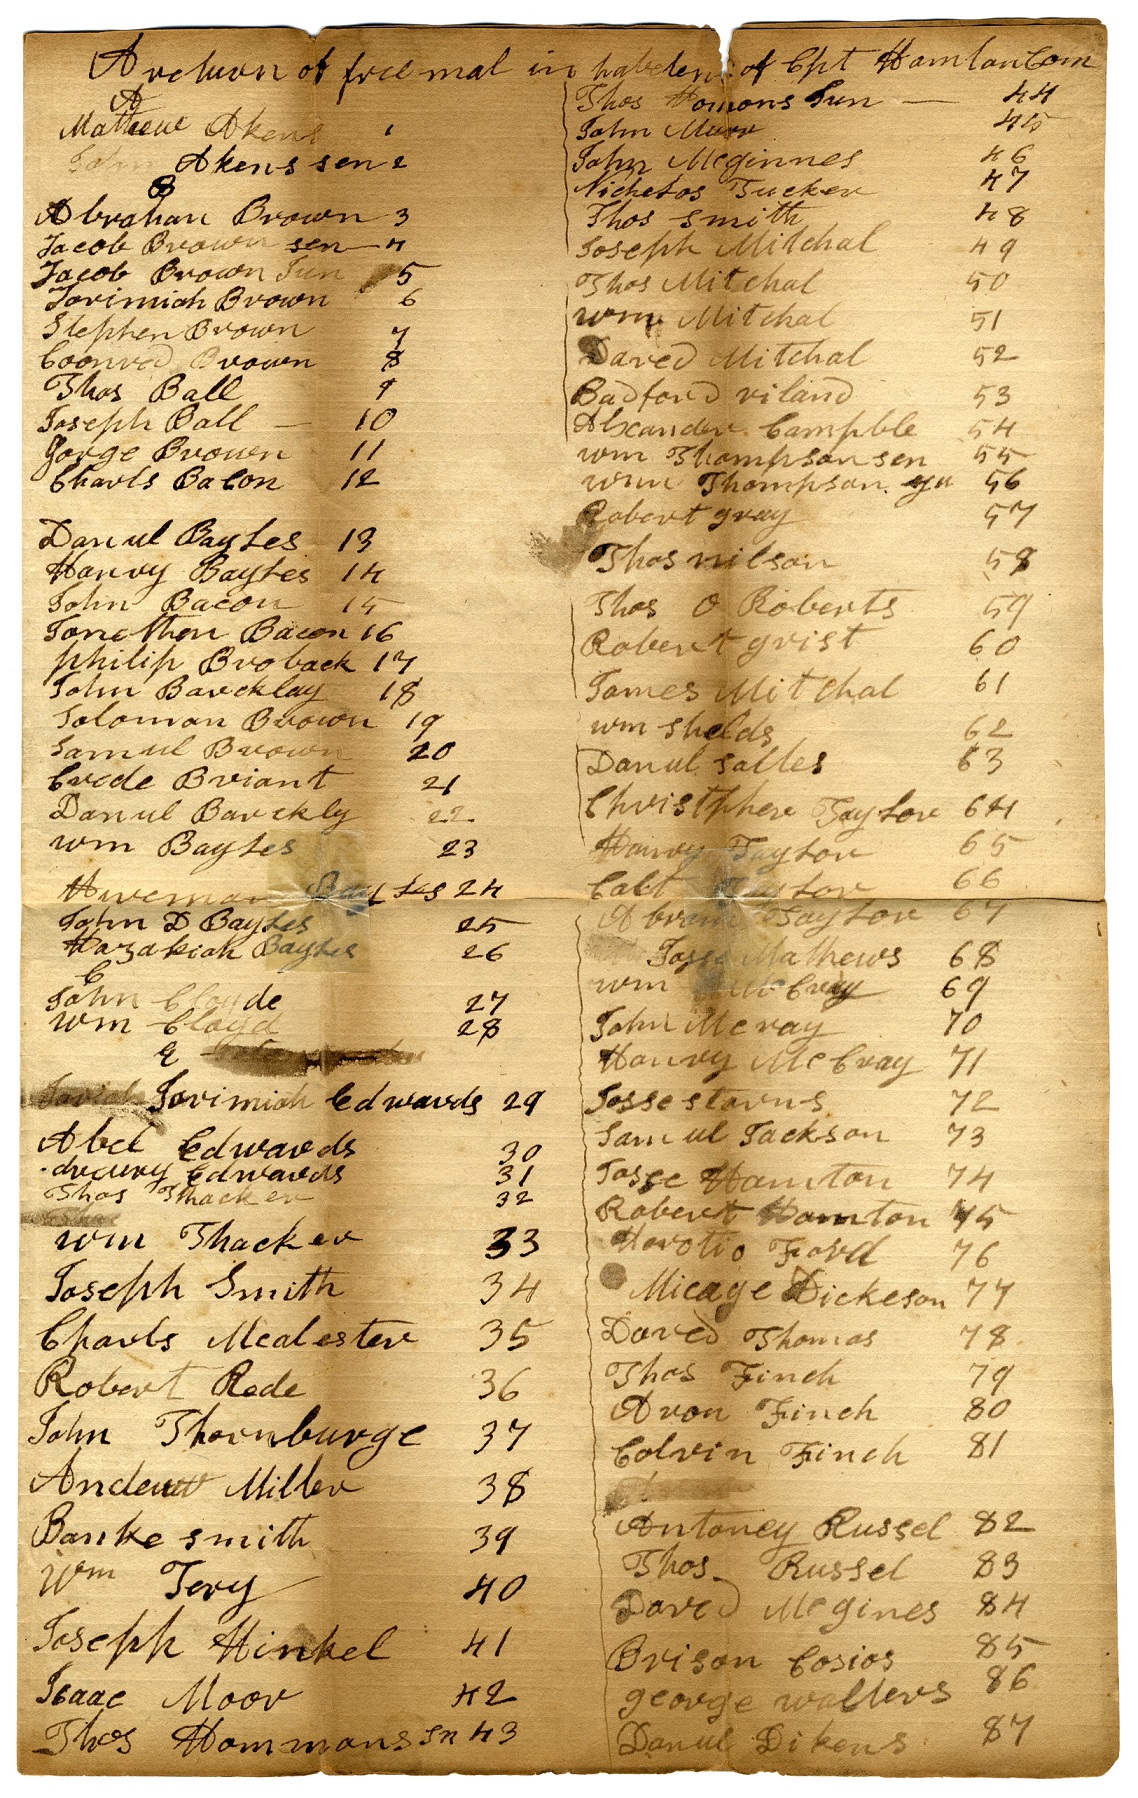 A return of free mal in habetens of Cpt Hamlan Com
A
Mathew Akens 1
John Akens sen 2
B
Abrahan Brown 3
Jacob Brown sen 4
Jacob Brown Jun 5
Jorimiah Brown 6
Stephen Brown 7
Coonrod Brown 8
Thos Ball 9
Joseph Ball — 10
Gorge Brown 11
Charls Bacon 12
Danul Bayles 13
Hanry Bayles 14
John Bacon 15
Jonethen Bacon 16
philip Broback 17
John Barcklay 18
Soloman Brown 19
Samul Brown 20
Crede Briant 21
Danul Barckly 22
wm Bayles 23
Hureman Bayles 24
John D Bayles 25
Hazakiah Bayles 26
C
John Cloyde 27
wm Cloyd 28
E
Jorimiah Edwards 29
Abel Edwards 30
drewry Edwards 31
Thos Thacker 32
wm Thacker 33
Joseph Smith 34
Charls Mcalester 35
Robert Rede 36
John Thornburge 37
Andeuw Miller 38
Banke smith 39
Wm Tery 40
Joseph Hinkel 41
Isaac Moor 42
Thos Hammons sn 43
Thos Homons Jun — 44
John Murr 45
John Mcginnes 46
Nichelos Tucker 47
Thos smith 48
Joseph Mitchal 49
Thos Mitchal 50
wm Mitchal 51
Daved Mitchal 52
Badford viland 53
Alxander Campble 54
wm Thompson sen 55
wm Thompson yu 56
Robert gray 57
Thos nilson 58
Thos O Roberts 59
Robert grist 60
James Mitchal 61
wm shelds 62
Danul salles 63
Christpher Taylor 64
Hanry Taylor 65
Calt Taylor 66
Abram Taylor 67
Josse Mathews 68
wm McCray 69
John Mcray 70
Hanry McCray 71
Josse starns 72
Samul Jackson 73
Josse Hamton 74
Robert Hamton 75
Horotio Ford 76
Micage Dickeson 77
Daved Thomas 78
Thos Finch 79
Aron Finch 80
Colvin Finch 81
Antoney Russel 82
Thos Russel 83
Daved Mcgines 84
Brison Cosios 85
george wallers 86
Danul Dikens 87